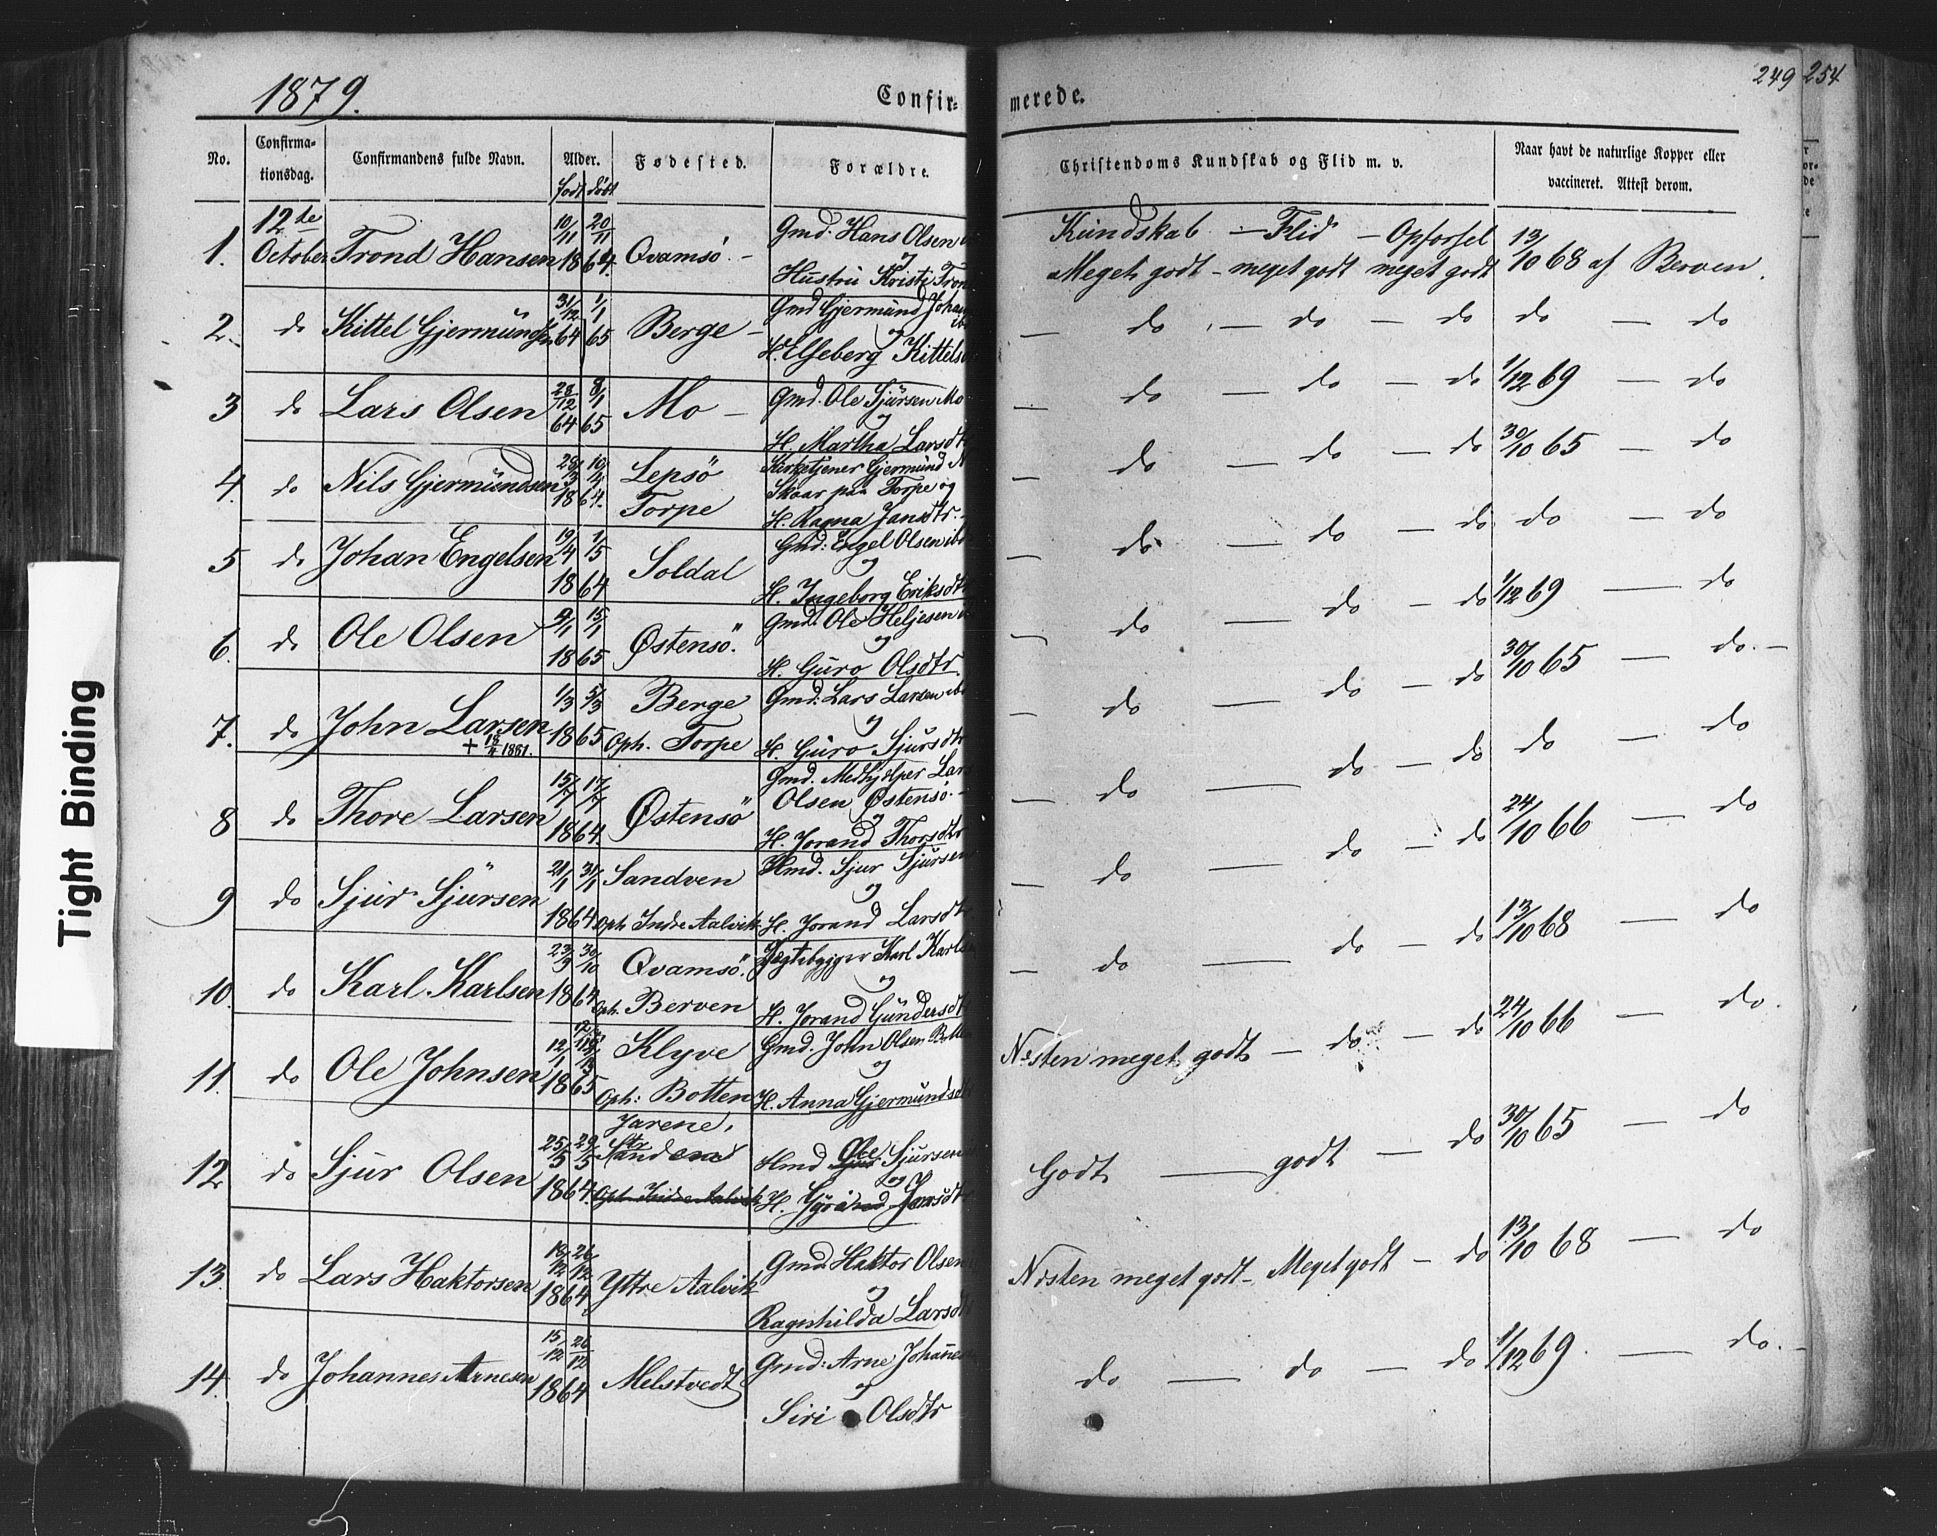 1879.
Confir-
merede.
249 254
No.
Confirma-
tionsdag.
Confirmandens fulde Navn.
Alder.
født døbt
Fødested.
Forældre.
Christendoms Kundskab og Flid m. v.
Naar havt de naturlige Kopper eller
vaccineret. Attest derom.
1. 12te October Trond Hansen 10/11 20/11 1864. Qvamsö. - Gmd. Hans Olsen og Hustru Kristi
Kundskab - Flid - Opförsel
Meget godt - meget godt meget godt 13/10 68 af Berven.
2. do Kittel Gjermunds 31/12 64 1/1 65 Berge - Gmd Gjermund og H. Elseberg
— do — do — do do — do
3 do Lars Olsen 28/12 64 8/1 65 Mo - Gmd. Ole Sjursen Mo og H. Martha Larsdt
— do — do — do 1/12 69 — do
4. do Nils Gjermundsen 1864. Lepsö Torpe Kirketjener Gjermund N Skaar paa Torpe og H. Ragna Jansdtr.
— do — do — do 30/10 65 — do
5 do Johan Engelsen 19/4 1/5 1864 Soldal Gmd: Engel Olsen ibd og H. Ingeborg Eriksdt
— do — do — do do — do
6. do Ole Olsen 15/1 1865 Østensö. Gmd. Ole Heljesen og H. Guro Olsdtr
— do — do — do 1/12 69 — do
7. do John Larsen + 18/4 1881. 1/3 5/3 1865 Berge Oph. Torpe Gmd: Lars Larsen ibd og H. Guro Sjursdtr
— do — do — do 30/10 65 — do. -
8 do Thore Larsen 15/7 17/7 1864. Østensö Gmd. Medhjelper Lars Olsen Østensö. og H. Jorand Thorsdtr
— do — do — do do — do
9 do Sjur Sjursen 21/1 31/1 1864 Sandven Oph Indre Aalvik Hmd. Sjur Sjursen og H. Jorand Larsdt
— do — do — do 24/10 66 — do
10. do Karl Karlsen 23/9 30/10 1864. Qvamsö. Oph. Berven Jægtebygger Karl og H. Jorand Gundersdt
— do — do — do 13/10 68 — do
11. do Ole Johnsen 1865 Klyve Oph: Botten Gmd. John Olsen og H. Anna Gjermundsdt
Næsten meget godt — do — do 24/10 66 — do.
12. do Sjur Olsen 25/5 29/5 1864. Jarene, Oph. Indre Aalvik Hmd Ole Sjursen og H.
Godt — godt — do 30/10 65 — do
13. do Lars Haktorsen 18/12 26/12 1864. Yttre Aalvik Gmd. Haktor Olsen og Ragnhilda Larsdt
Næsten meget godt - Meget godt - do 13/10 68 — do
14. do Johannes Arnesen 15/12 26/12 1864 Melstvedt Gmd: Arne og Siri Olsdtr
do — do — do 1/12 69. — do. -
Tight Binding